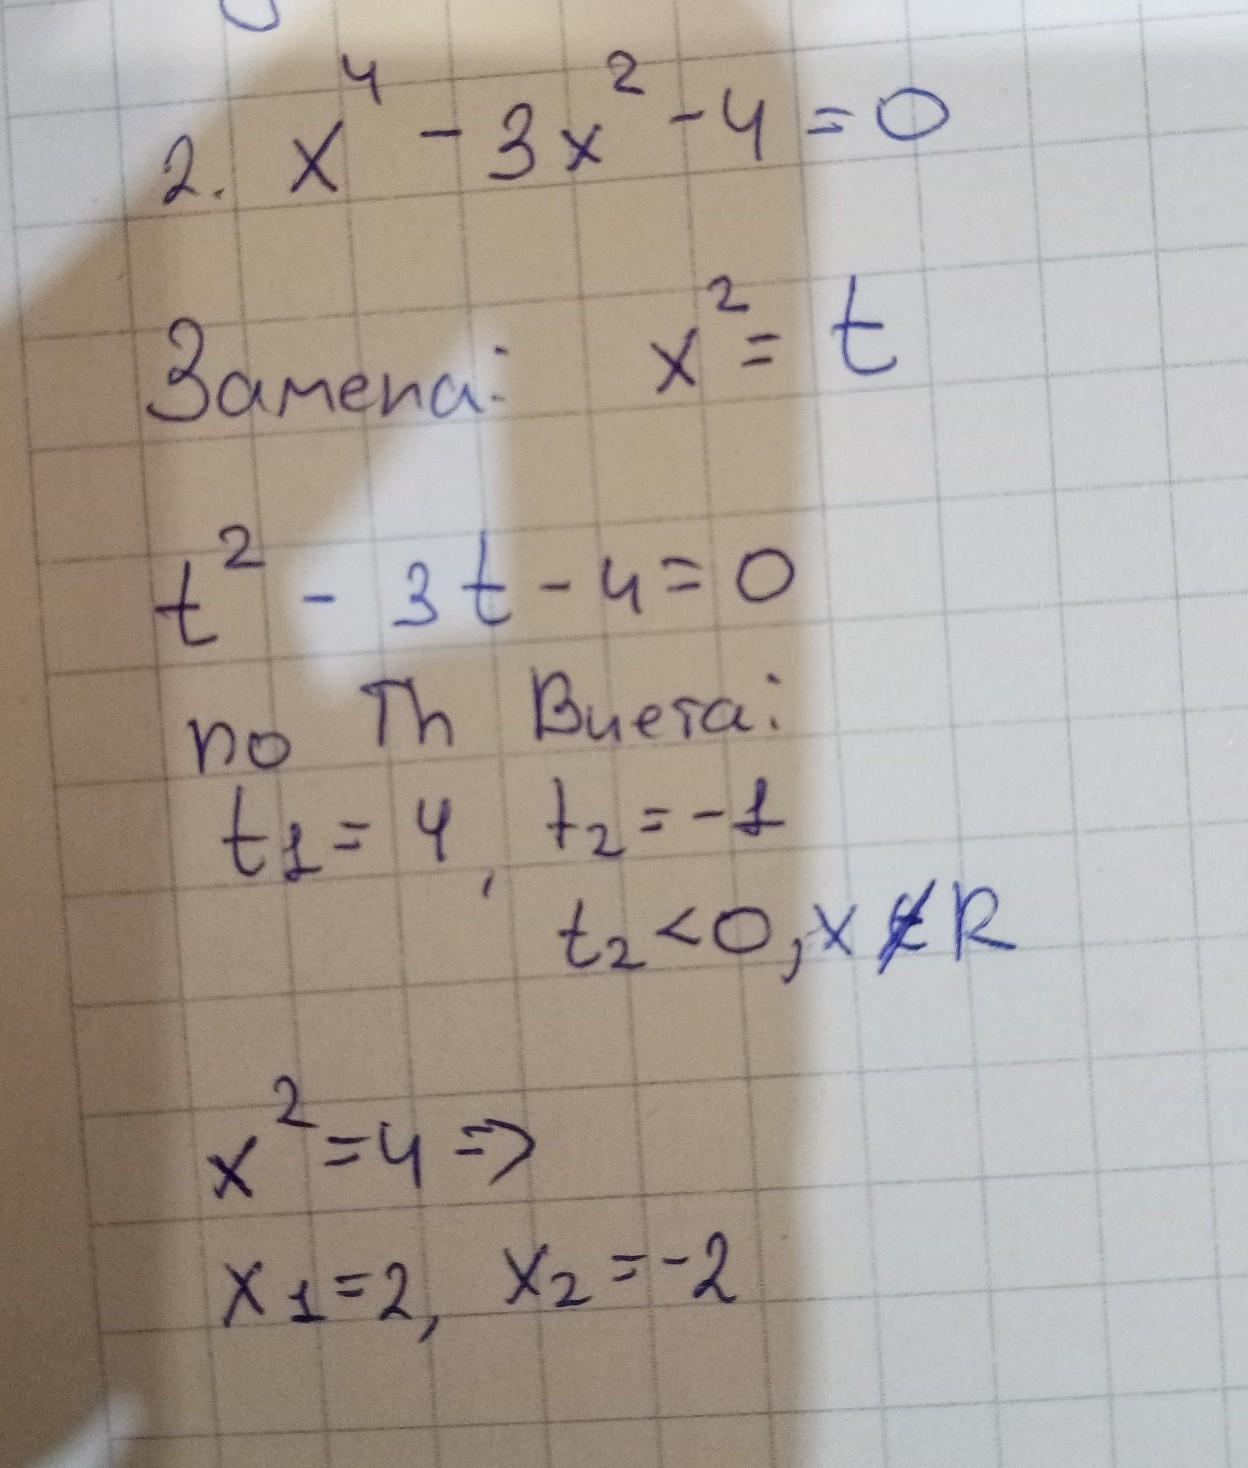 2. x⁴ - 3x² - 4 = 0
Замена: x² = t
t² - 3t - 4 = 0
по Th Виета:
t₁ = 4, t₂ = -1
t₂ < 0, x ∉ R
x² = 4 =>
x₁ = 2, x₂ = -2